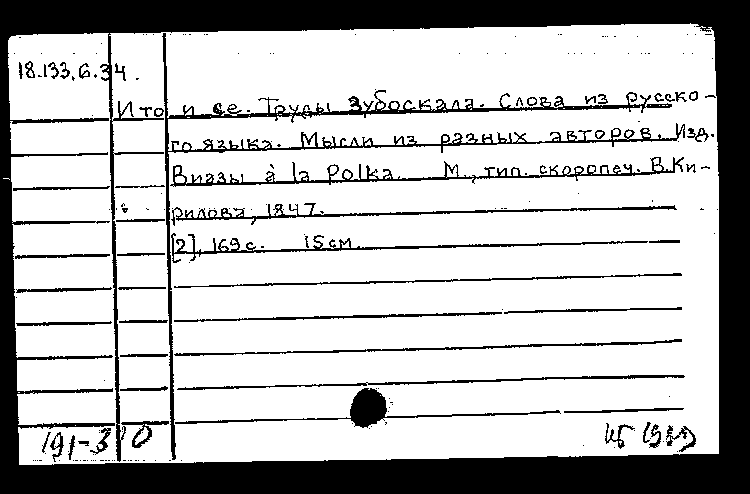 18.133.6.34.
И то и се. Труды зубоскала. Слова из русско-
го языка. Мысли из разных авторов. Изд.
Виазы à la Polka. М., тип. скоропеч. В.Ки-
рилова, 1847.
[2], 169 с. 15 см.
191-3 0